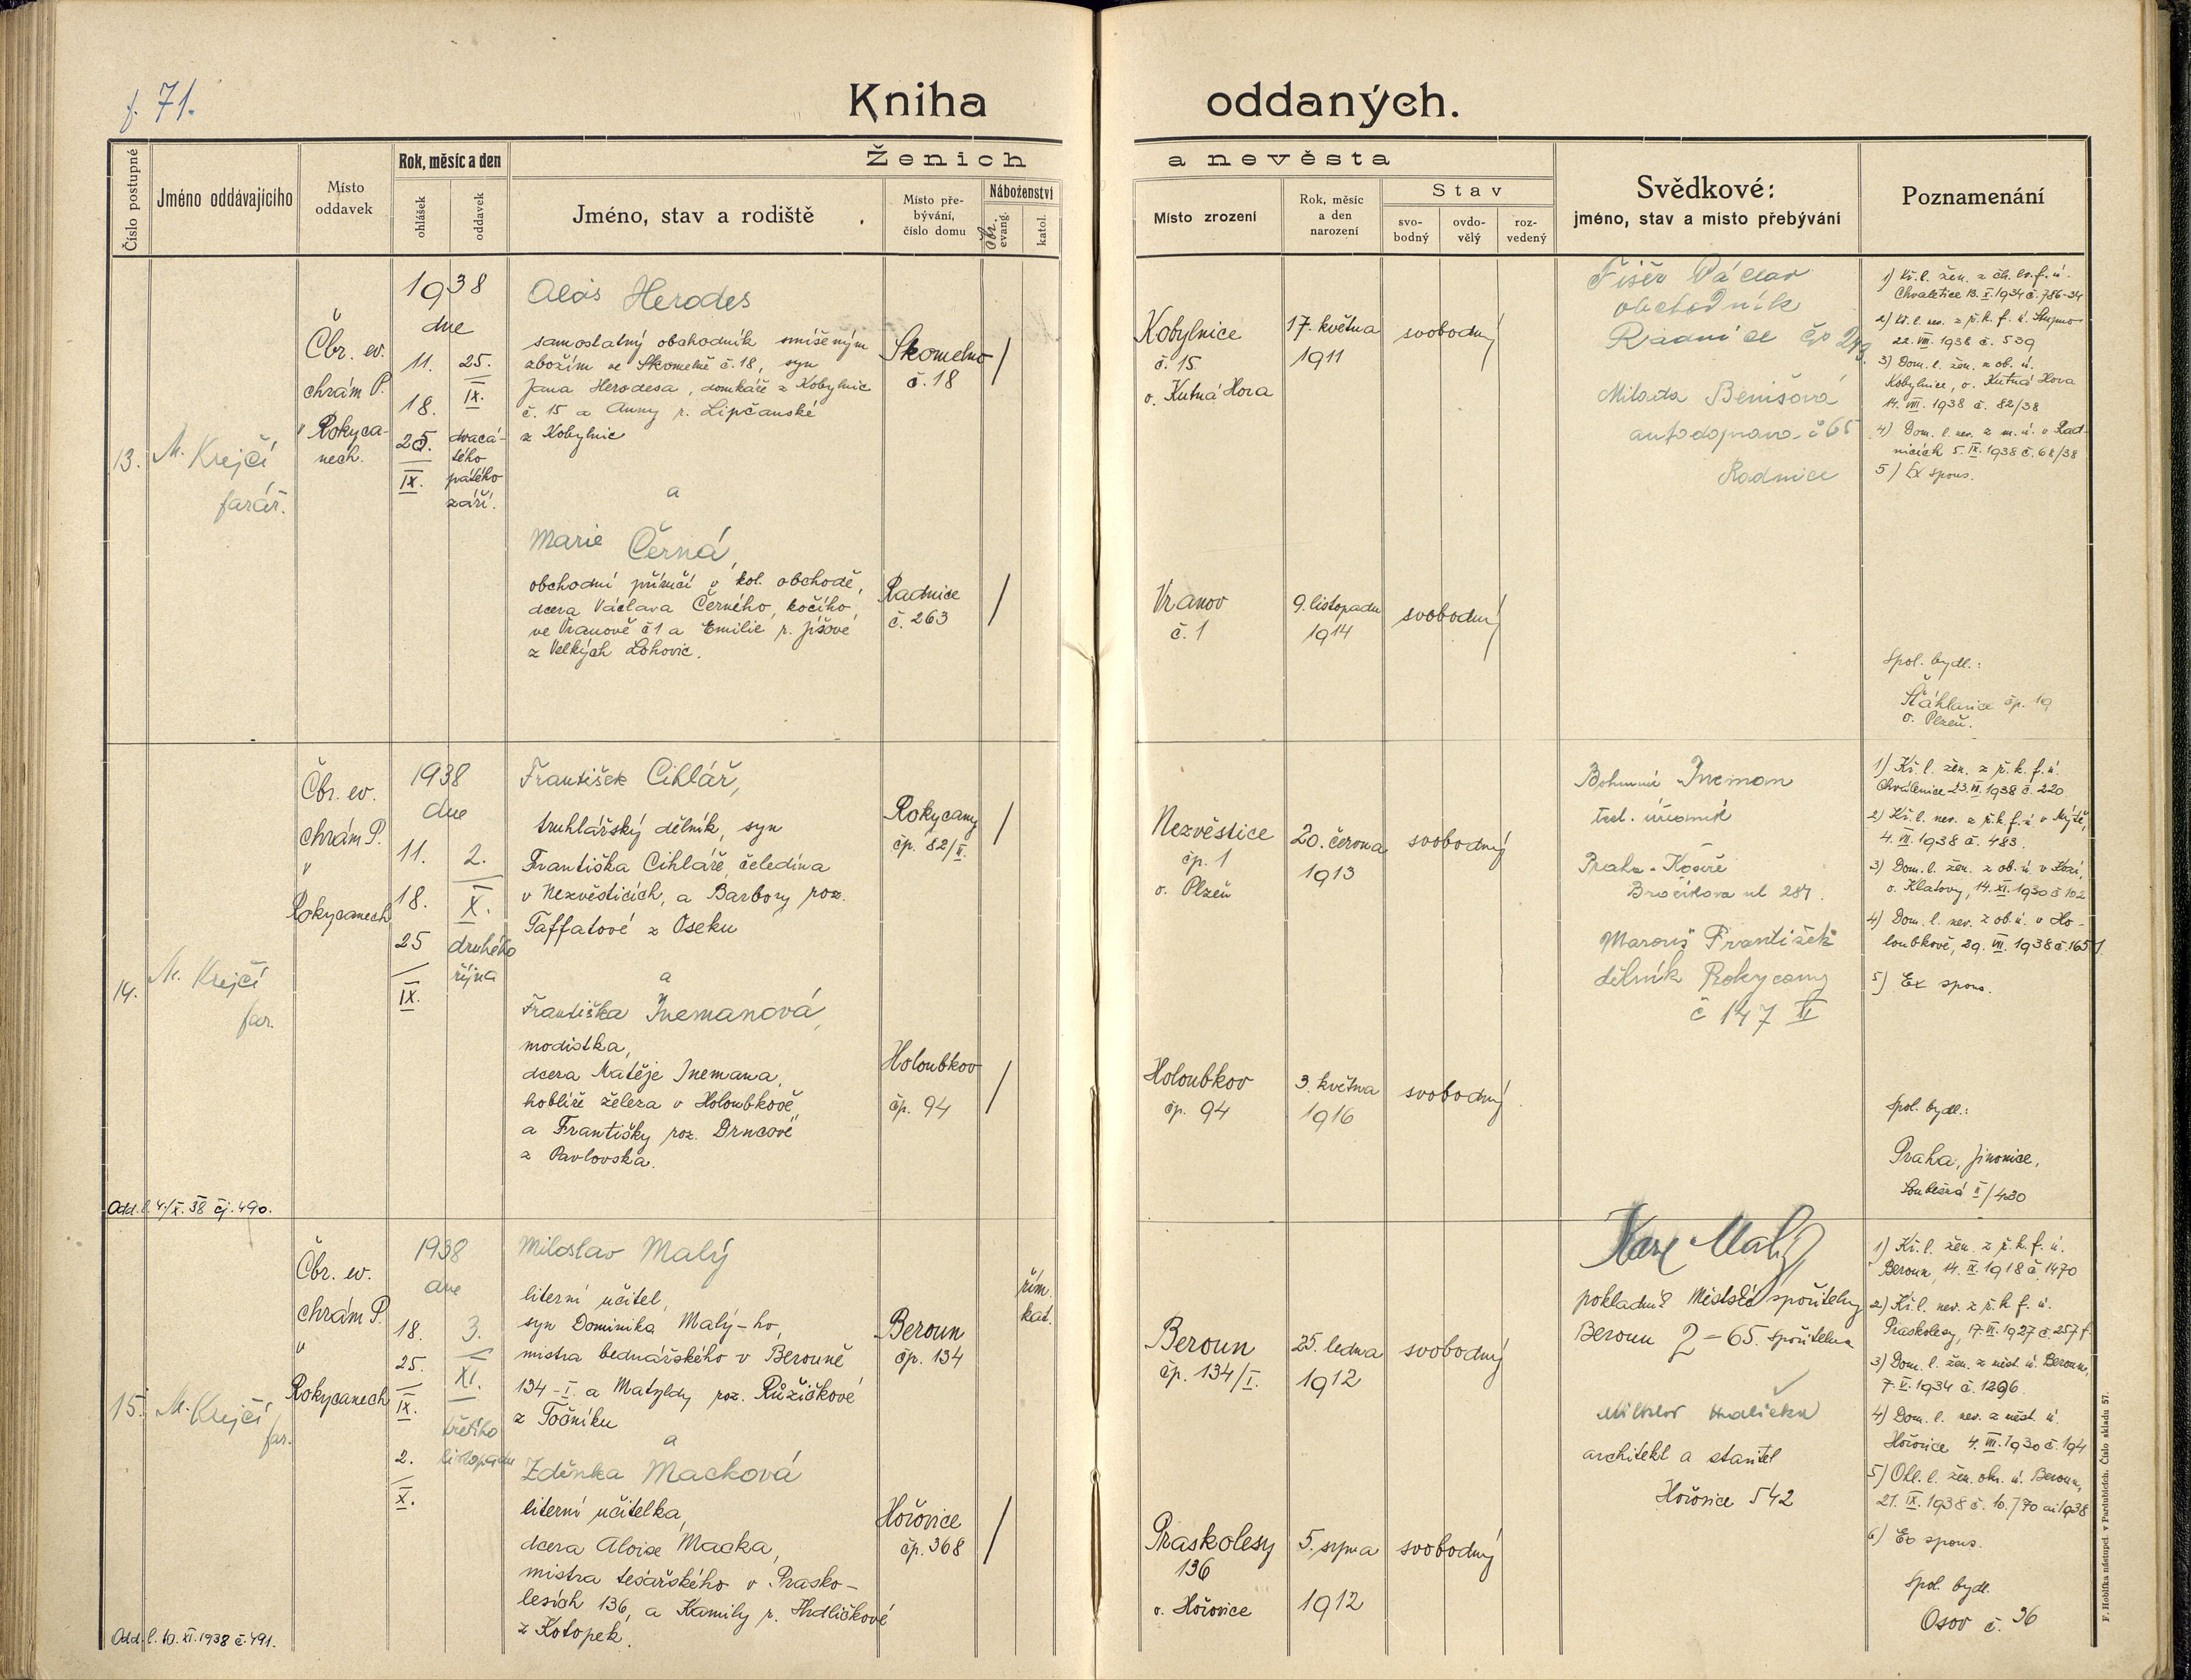 f. 71.
Kniha oddaných.
Číslo postupné
Jméno oddávajícího
Místo
oddavek
Rok, měsíc a den
ohlášek
oddavek
Ženich a nevěsta
Jméno, stav a rodiště
Místo pře-
bývání,
číslo domu
Náboženství
čbr.
evang.
katol.
Místo zrození
Rok, měsíc
a den
narození
Stav
svo-
bodný
ovdo-
vělý
roz-
vedený
Svědkové:
jméno, stav a místo přebývání
Poznamenání
13.
M. Krejčí
farář.
Čbr. ev.
chrám P.
v Rokyca-
nech.
1938
dne
11.
18.
25.
IX.
25.
IX.
dvacá-
tého
pátého
září.
Alois Herodes
samostatný obchodník smíšeným
zbožím ve Skomelně č. 18, syn
Jana Herodesa, domkáře z Kobylnic
č. 15 a Anny r. Lipčanské
z Kobylnic
a
Marie Černá,
obchodní příručí v kol. obchodě,
dcera Václava Černého, kočího
ve Vranově č 1 a Emilie r. Jíšové
z Velkých Lohovic.
Skomelno
č. 18
/
Radnice
č. 263
/
Kobylnice
č. 15
o. Kutná Hora
17. května
1911
svobodný
Vranov
č. 1
9. listopadu
1914
svobodný
Fišer Václav
obchodník
Radnice čp
Milada Benišová
autodoprava č 65
Radnice
1) Kř. l. žen. z čh. ev. f. ú.
Chvaletice 13. X. 1934 č. 786-34
2) Kř. l. nev. z ř. k. f. ú. Stupno
22. VIII. 1938 č. 539
3) Dom. l. žen. z ob. ú.
Kobylnice, o. Kutná Hora
14. VIII. 1938 č. 82/38
4) Dom. l. nev. z m. ú. v Rad-
nicích 5. IX. 1938 č. 68/38
5) Ex spons.
Spol. bydl.:
Šťáhlavice čp. 19
o. Plzeň.
14.
M. Krejčí
far.
Čbr. ev.
chrám P.
v
Rokycanech
1938
dne
11.
18.
25
IX.
2.
X.
druhého
října
František Cihlář,
truhlářský dělník, syn
Františka Cihláře, čeledína
v Nezvěsticích, a Barbory roz.
Taffatové z Oseku
a
Františka Inemanová,
modistka,
dcera Matěje Inemana,
hoblíře železa v Holoubkově,
a Františky roz. Drncové
z Pavlovska.
Rokycany
čp. 82/II.
/
Holoubkov
čp. 94
/
Nezvěstice
čp. 1
o. Plzeň
20. června
1913
svobodný
Holoubkov
čp. 94
3. května
1916
svobodný
Bohumil Ineman
úředník
Praha - Košíře
ul 287.
Marouš František
dělník Rokycany
č 147 II
1) Kř. l. žen. z ř. k. f. ú.
Chválenice 23. VI. 1938 č. 220
2) Kř. l. nev. z ř. k. f. ú v Mýtě,
4. VII. 1938 č. 483.
3) Dom. l. žen. z ob. ú. v Kozí,
o. Klatovy, 14. XI. 1930 č 102
4) Dom. l. nev. z ob. ú. v Ho-
loubkově, 29. VII. 1938 č. 165
5) Ex spons.
Spol. bydl.:
Praha, Jinonice,
II/430
Odd. l. 4/X. 38 čj. 490.
15.
M. Krejčí
far.
Čbr. ev.
chrám P.
v
Rokycanech
1938
dne
18.
25.
IX.
2.
X.
3.
XI.
třetího
listopadu
Miloslav Malý
literní učitel,
syn Dominika Malý-ho,
mistra bednářského v Berouně
134-I. a Matyldy roz. Růžičkové
z Točníku
a
Zdeňka Macková
literní učitelka,
dcera Aloise Macka,
mistra tesařského v Prasko-
lesích 136, a Kamily r. Hrdličkové
z Kotopek.
Beroun
čp. 134
řím.
kat.
Hořovice
čp. 368
/
Beroun
čp. 134/I.
25. ledna
1912
svobodný
Praskolesy
136
o. Hořovice
5. srpna
1912
svobodný
Karel Malý
pokladní Městské spořitelny
Beroun 2-65. Spořitelna
architekt a stavitel
Hořovice 542
1) Kř. l. žen. z ř. k. f. ú.
Beroun, 14. IX. 1918 č. 1470
2) Kř. l. nev. z ř. k. f. ú.
Praskolesy, 17. VI. 1927 č. 257 f.
3) Dom. l. žen. z měst. ú. Beroun,
7. V. 1934 č. 1296.
4) Dom. l. nev. z měst. ú.
Hořovice 4. VIII. 1930 č. 194
5) Ohl. l. žen. okr. ú. Beroun,
21. IX. 1938 č. 1938
6) Ex spons.
Spol. bydl.
Osov č. 36
Odd. l. 10. XI. 1938 č. 491.
F. Hoblíka nástupci. v Pardubicích. Číslo skladu 57.